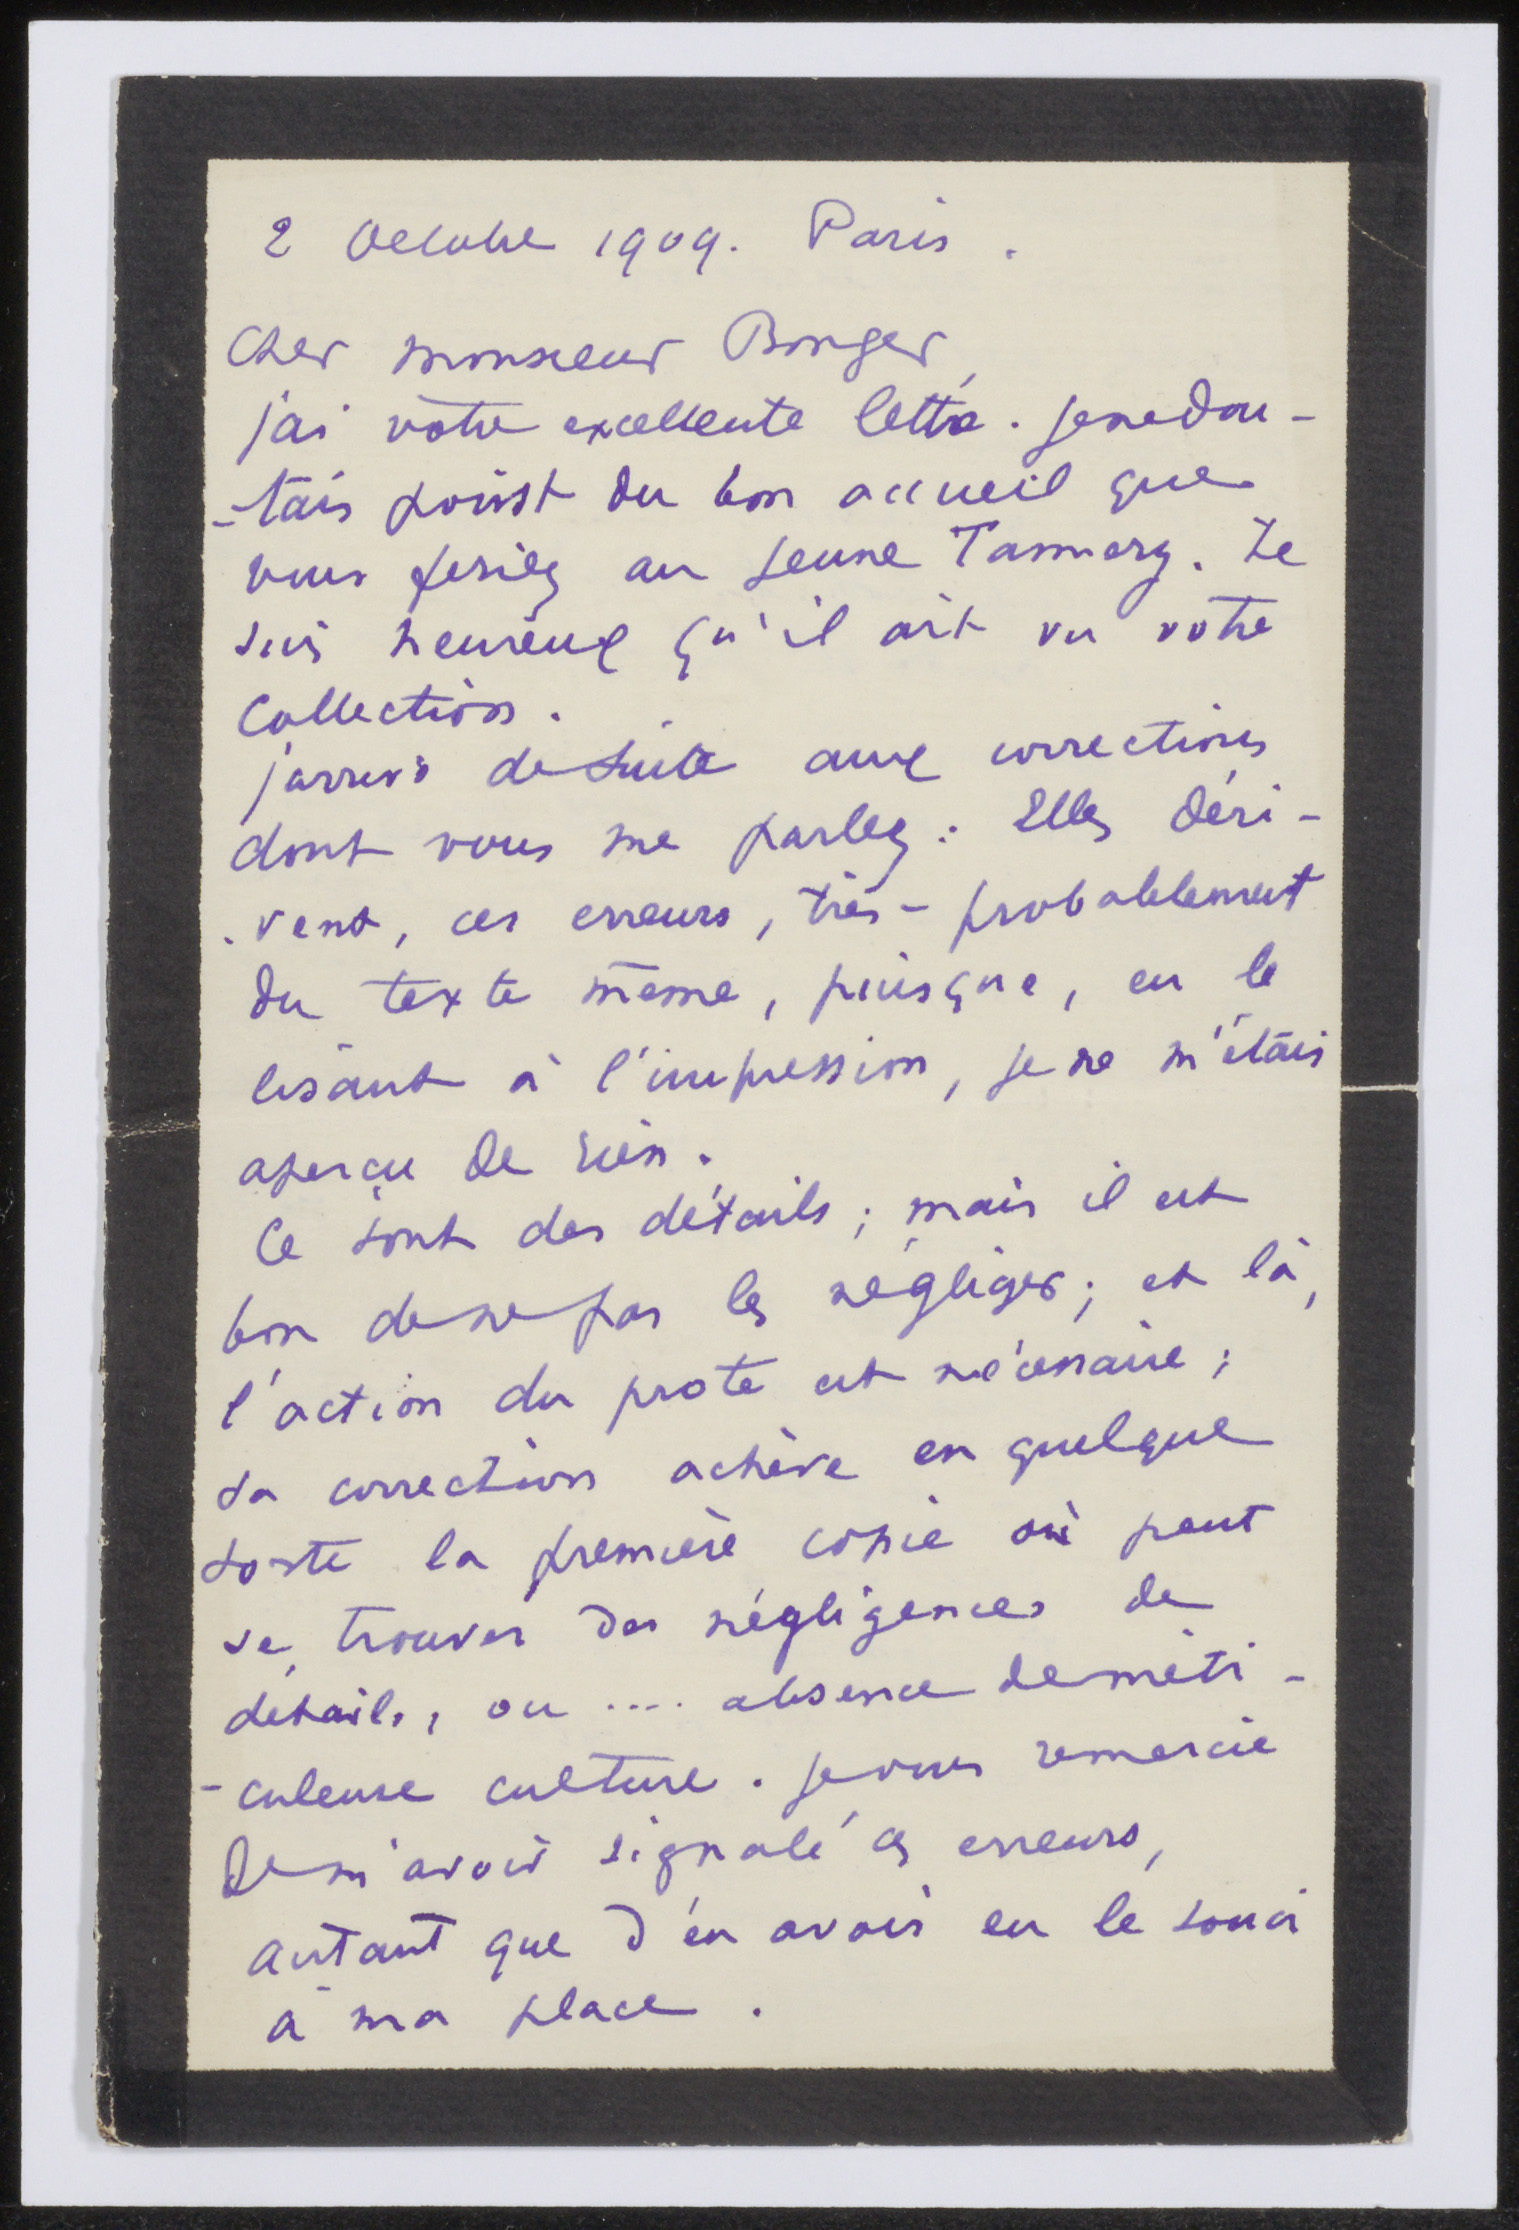 2 Octobre 1909. Paris.
Cher monsieur Bonger,
j'ai votre excellente lettre. je ne dou-
-tais point du bon accueil que
vous feriez au jeune Tannery. Je
suis heureux qu'il ait vu votre
Collection.
j'arrive de suite aux corrections
dont vous me parlez: Elles déri-
-vent, ces erreurs, très-probablement
du texte même, puisque, en le
lisant à l'impression, je ne m'étais
aperçu de rien.
Ce sont des détails; mais il est
bon de ne pas les négliger; et là,
l'action du prote est nécessaire;
sa correction achève en quelque
sorte la première copie où peut
se trouver des négligences de
détails, ou .... absence de méti-
-culeuse culture. je vous remercie
De m'avoir signalé ces erreurs,
autant que d'en avoir eu le souci
à ma place.